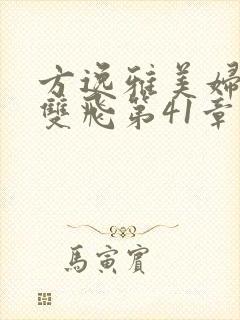 方逸雅美婦
雙飛第41章
馬寅賓